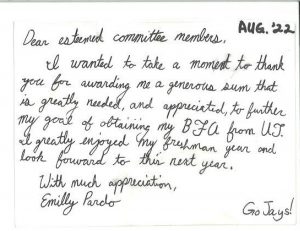 AUG. '22
Dear esteemed committee members,
I wanted to take a moment to thank
you for awarding me a generous sum that
is greatly needed, and appreciated, to further
my goal of obtaining my BFA from UT.
I greatly enjoyed my freshman year and
look forward to this next year.
With much appreciation,
Emilly Pardo
Go Jays!